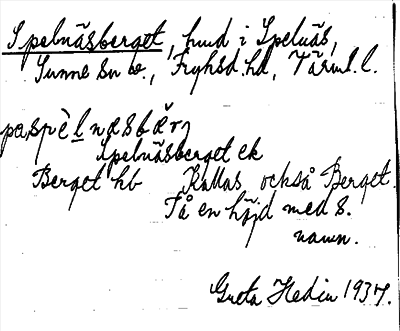 Spelnäsberget, hmd i Spelnäs,
Sunne sn v., Fryksd. hd, Värml. l.
pa, spèlnæsbær̆j
Spelnäsberget ek
Berget hb Kallas också Berget.
På en höjd med s.
namn.
Greta Hedin 1937.